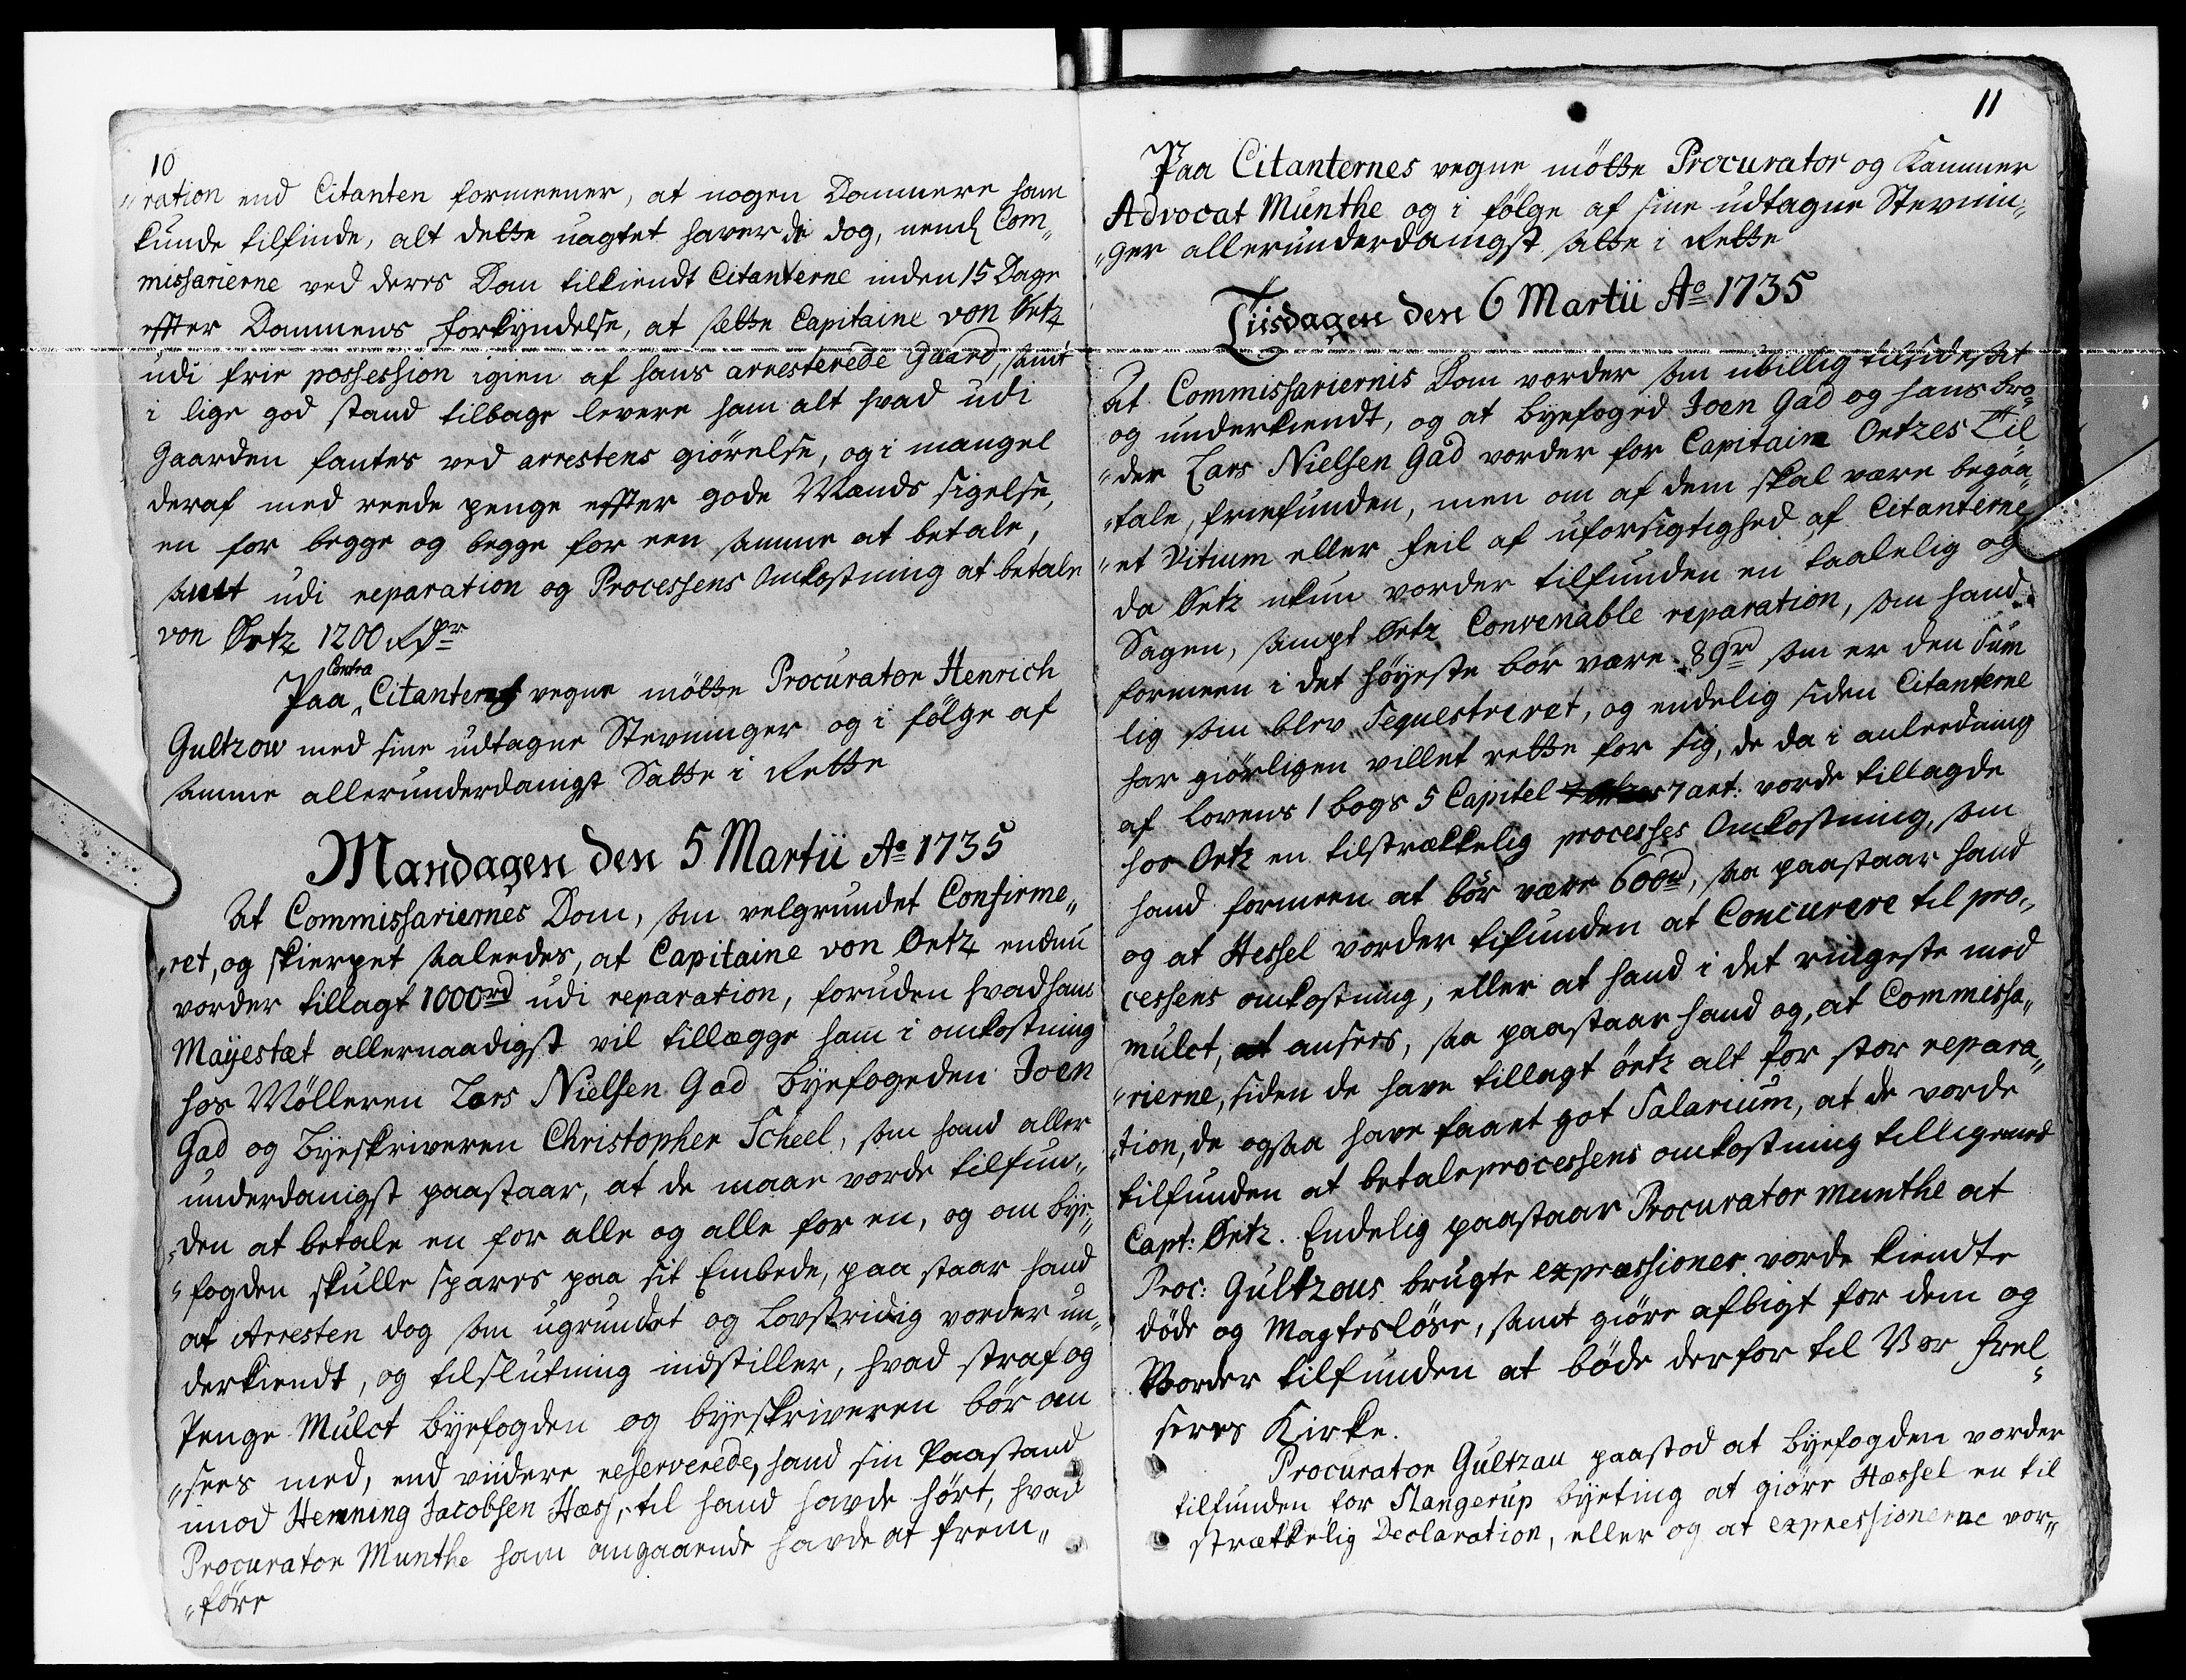 10
"ration end Citanten formeener, at nogen Dommere ham
kunde tilfinde, alt dette uagtet haver di dog, nendl Com„
missarierne ved deres Dom tilkiendt Citanterne inden 15 Dage
effter Dommens forkyndelse, at sette Capitaine von Oetz
udi frie possession igien af hans arresterede Gaard, samt
i lige god stand tilbage levere ham alt hvad udi
Gaarden fantes ved arrestens giörelse, og i mangel
deraf med reede penge effter gode Mænds sigelse,
en for begge og begge for een samme at betale,
samt udi reparation og Processens Omkostning at betale
von Oetz 1200 Rdr
Paa Contra Citanternes vegne mötte Procurator Henrich
Gultzow med sine udtagne Stevninger og i fölge af
samme allerunderdanigst Satte i Rette
Mandagen den 5 Martii Ao 1735
At Commissariernes Dom, som velgrundet Confirme„
"ret, og skierpet saaleedes, at Capitaine von Oetz endnu
vorder tillagt 1000rd udi reparation, foruden hvad hans
Mayestæt allernaadigst vil tillægge ham i omkostning
hos Mölleren Lars Nielsen Gad Byefogeden Joen
Gad og Byeskriveren Christopher Scheel, som hand aller
underdanigst paastaar, at de maae vorde tilfun„
"den at betale en for alle og alle for en, og om bye„
"fogden skulle spares paa sit Embede, paa staar hand
at Arresten dog som ugrundet og Lovstridig vorder un„
derkiendt, og tilslutning indstiller, hvad straf og
Penge Mulct byefogden og byeskriveren bör an
"sees med, end viidere reserverede, hand sin Paastand
imod Henning Jacobsen Hæss, til hand havde hört, hvad
Procurator Munthe ham angaaende havde at frem„
"före
11
Paa Citanternes vegne mötte Procurator og Kammer
Advocat Munthe og i fölge af sine udtagne Stevnin„
"ger allerunderdanigst satte i Rette
Tiisdagen den 6 Martii Ao 1735
At Commissariernis Dom vorder som ubillig tilsidesat
og underkiendt, og at byefoged Joen Gad og hans bro„
"der Lars Nielsen Gad vorder for Capitain Oetzes Til„
"tale, friefunden, men om af dem skal være begaa„
"et Vitium eller feil af uforsigtighed af Citanterne
da Oetz ikun vorder tilfunden en taalelig og
Sagen, sampt Oetz Convenable reparation, som hand
formeen i det höyeste bör være 89rd som er den Sum
lig som blev Sequestreret, og endelig siden Citanterne
har giörligen villet rette for sig, de da i anleedning
af Lovens 1 bogs 5 Capitel 7 art: vorde tillagde
hos Oetz en tilstrækkelig processes Omkostning, som
hand formeen at bör være 600rd, saa paastaar hand
og at Hessel vorder tifunden at Concurere til pro„
cessens omkostning, eller at hand i det ringeste med
mulct, at ansees, saa paastaar hand og, at Commissa„
"rierne, siden de have tillagt öetz alt for stor repara„
"tion, de ogsaa have faaet got Salarium, at de vorde
tilfunden at betale processens omkostning tilligemed
Capt: Oetz. Endelig paastaar Procurator Munthe at
Proc: Gultzous brugte expressioner vorde kiendte
döde og Magteslöse, samt giöre afbigt for dem og
Vorder tilfunden at böde derfor til Vor Frel„
seres Kirke.
Procurator Gultzau paastod at byefogden vorder
tilfunden for Slangerup byeting at giöre Hæssel en til
strækkelig Declaration, eller og at expressionerne vor„